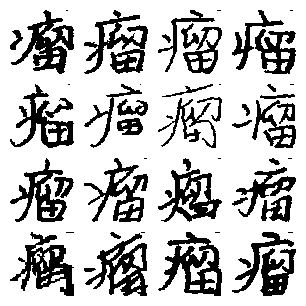 瘤瘤瘤瘤
瘤瘤瘤瘤
瘤瘤瘤瘤
瘤瘤瘤瘤